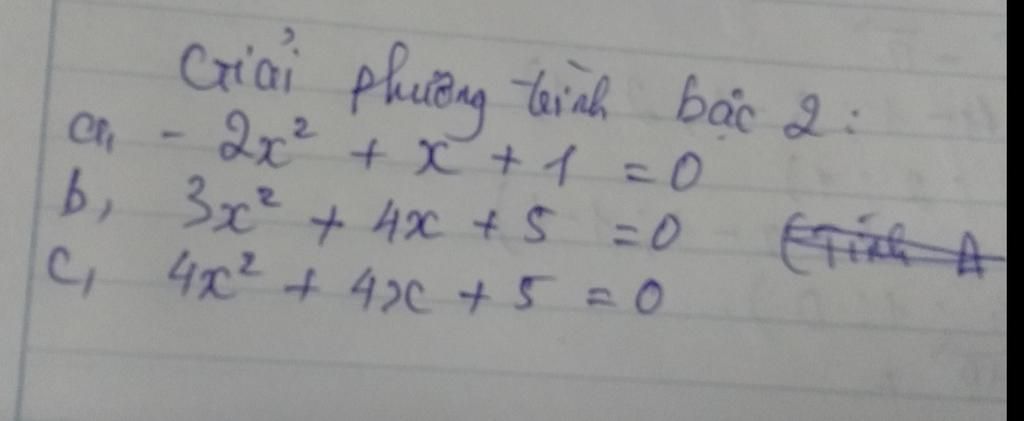 Giải phương trình bậc 2:
a, - 2x² + x + 1 = 0
b, 3x² + 4x + 5 = 0 (Tính Δ
c, 4x² + 4x + 5 = 0